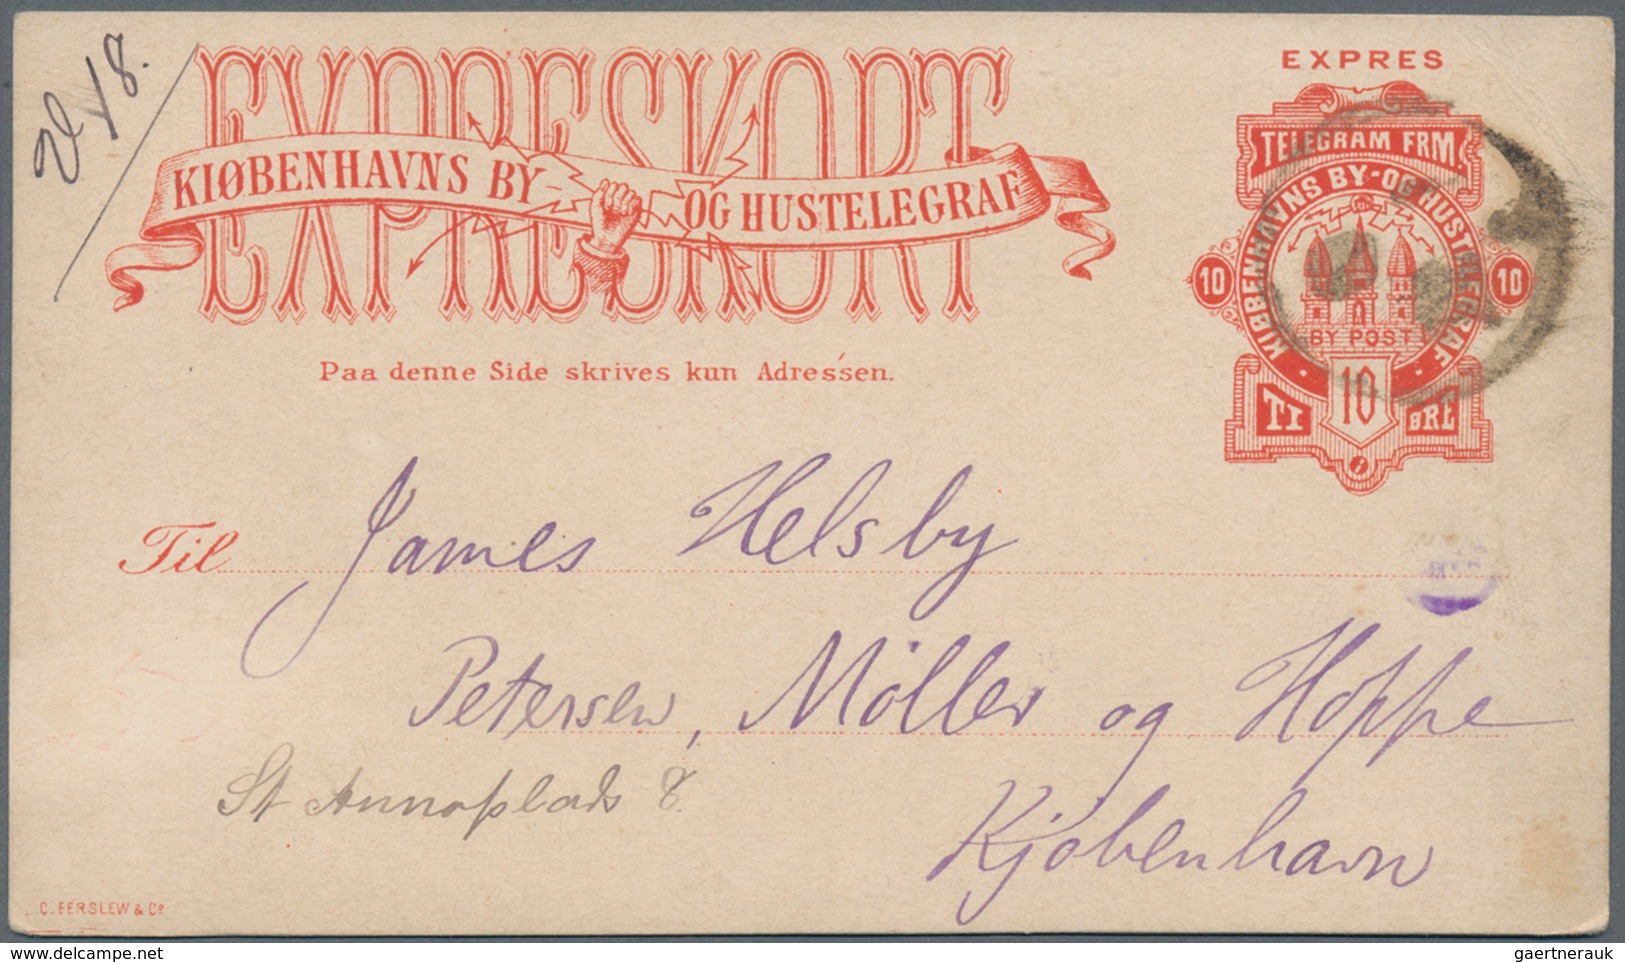 18.
EXPRESKORT
KIØBENHAVNS BY- OG HUSTELEGRAF
EXPRES
TELEGRAM FRM.
KIØBENHAVNS BY-OG HUSTELEGRAF
10 10
BY POST
TI 10 ØRE
Paa denne Side skrives kun Adressen.
Til James Helsby
Petersen, Möller og Hoppe
St Annaplads 8.
Kjöbenhavn
C. FERSLEW & Co
delcampe.net
gaertnerauk